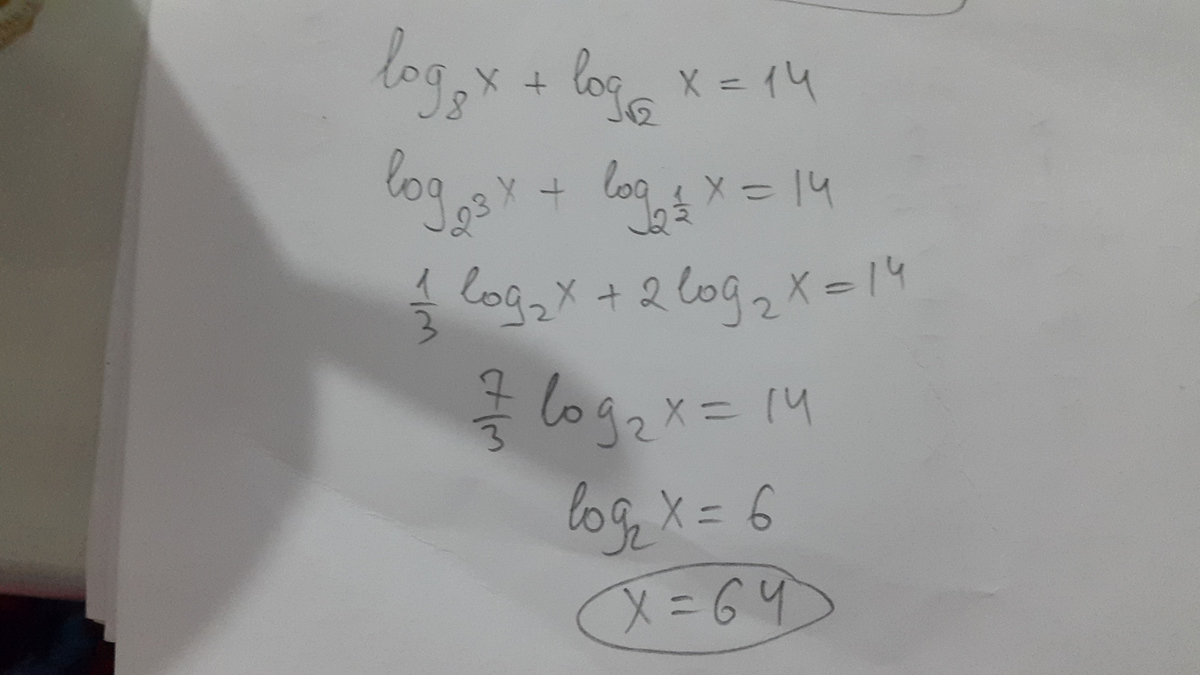 log₈x + log_√2 x = 14
log_2³ x + log_2^(1/2) x = 14
1/3 log₂x + 2 log₂x = 14
7/3 log₂x = 14
log₂x = 6
x = 64